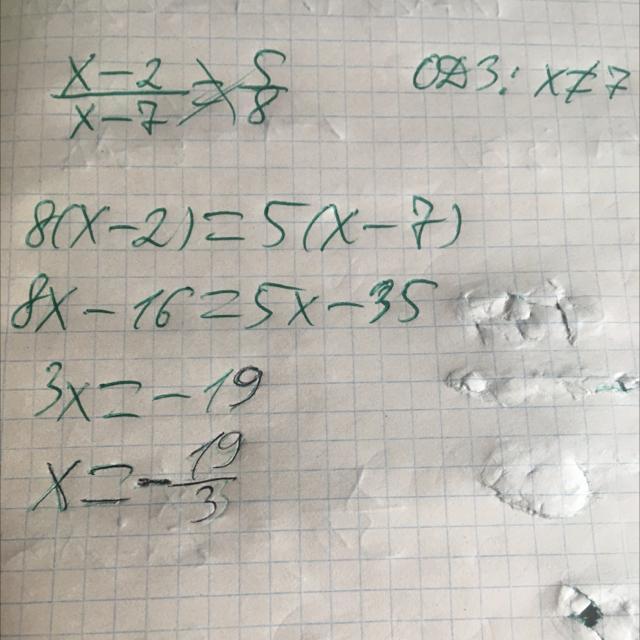 x-2/x-7 = 5/8 ОДЗ: x≠7
8(x-2)=5(x-7)
8x-16=5x-35
3x=-19
x=-19/3